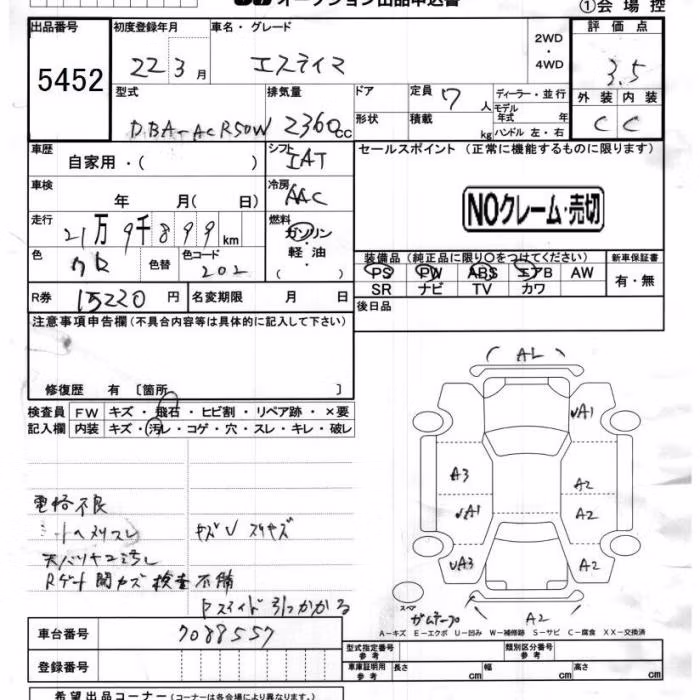 オークション出品申込書
①会場控
出品番号
5452
初度登録年月
22 3月
車名・グレード
エスティマ
2WD
・
4WD
評価点
3.5
外装 内装
C C
型式
DBA-ACR50W
排気量
2360cc
ドア
形状
定員 7人
積載 kg
ディーラー・並行
モデル年式 年
ハンドル 左・右
車歴
自家用・( )
シフト
IAT
セールスポイント (正常に機能するものに限ります)
NOクレーム・売切
車検
年 月( 日)
冷房
AAC
走行
21万9千899km
燃料
ガソリン
・
軽油
・
( )
色
クロ
色替
色コード
202
装備品 (純正品に限り○をつけてください)
新車保証書
PS PW ABS エアB AW
有・無
SR ナビ TV カワ
R券
15220円
名変期限 月 日
後日品
注意事項申告欄 (不具合内容等は具体的に記入して下さい)
修復歴 有 〔箇所 〕
検査員記入欄
FW キズ・飛石・ヒビ割・リペア跡・×要
内装 キズ・汚レ・コゲ・穴・スレ・キレ・破レ
電格不良
キズV スリキズ
Rゲート開カズ 検査不備
引っかかる
AL
UA1
A3
A2
UA1
A2
UA3
A2
スペア
ガムテープ
A2
A－キズ E－エクボ U－凹み W－補修跡 S－サビ C－腐食 XX－交換済
車台番号
7088557
登録番号
型式指定番号 参考
類別区分番号 参考
車庫証明用 参考
長さ cm
幅 cm
高さ cm
希望出品コーナー (コーナーは各会場により異なります)